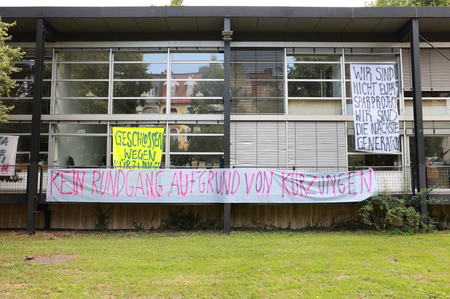 GESCHLOSSEN
WEGEN
KÜRZUNG
WIR SIND
NICHT EUER
SPARPROJEKT
WIR SIND
DIE NÄCHSTE
GENERATION
KEIN RUNDGANG AUFGRUND VON KÜRZUNGEN